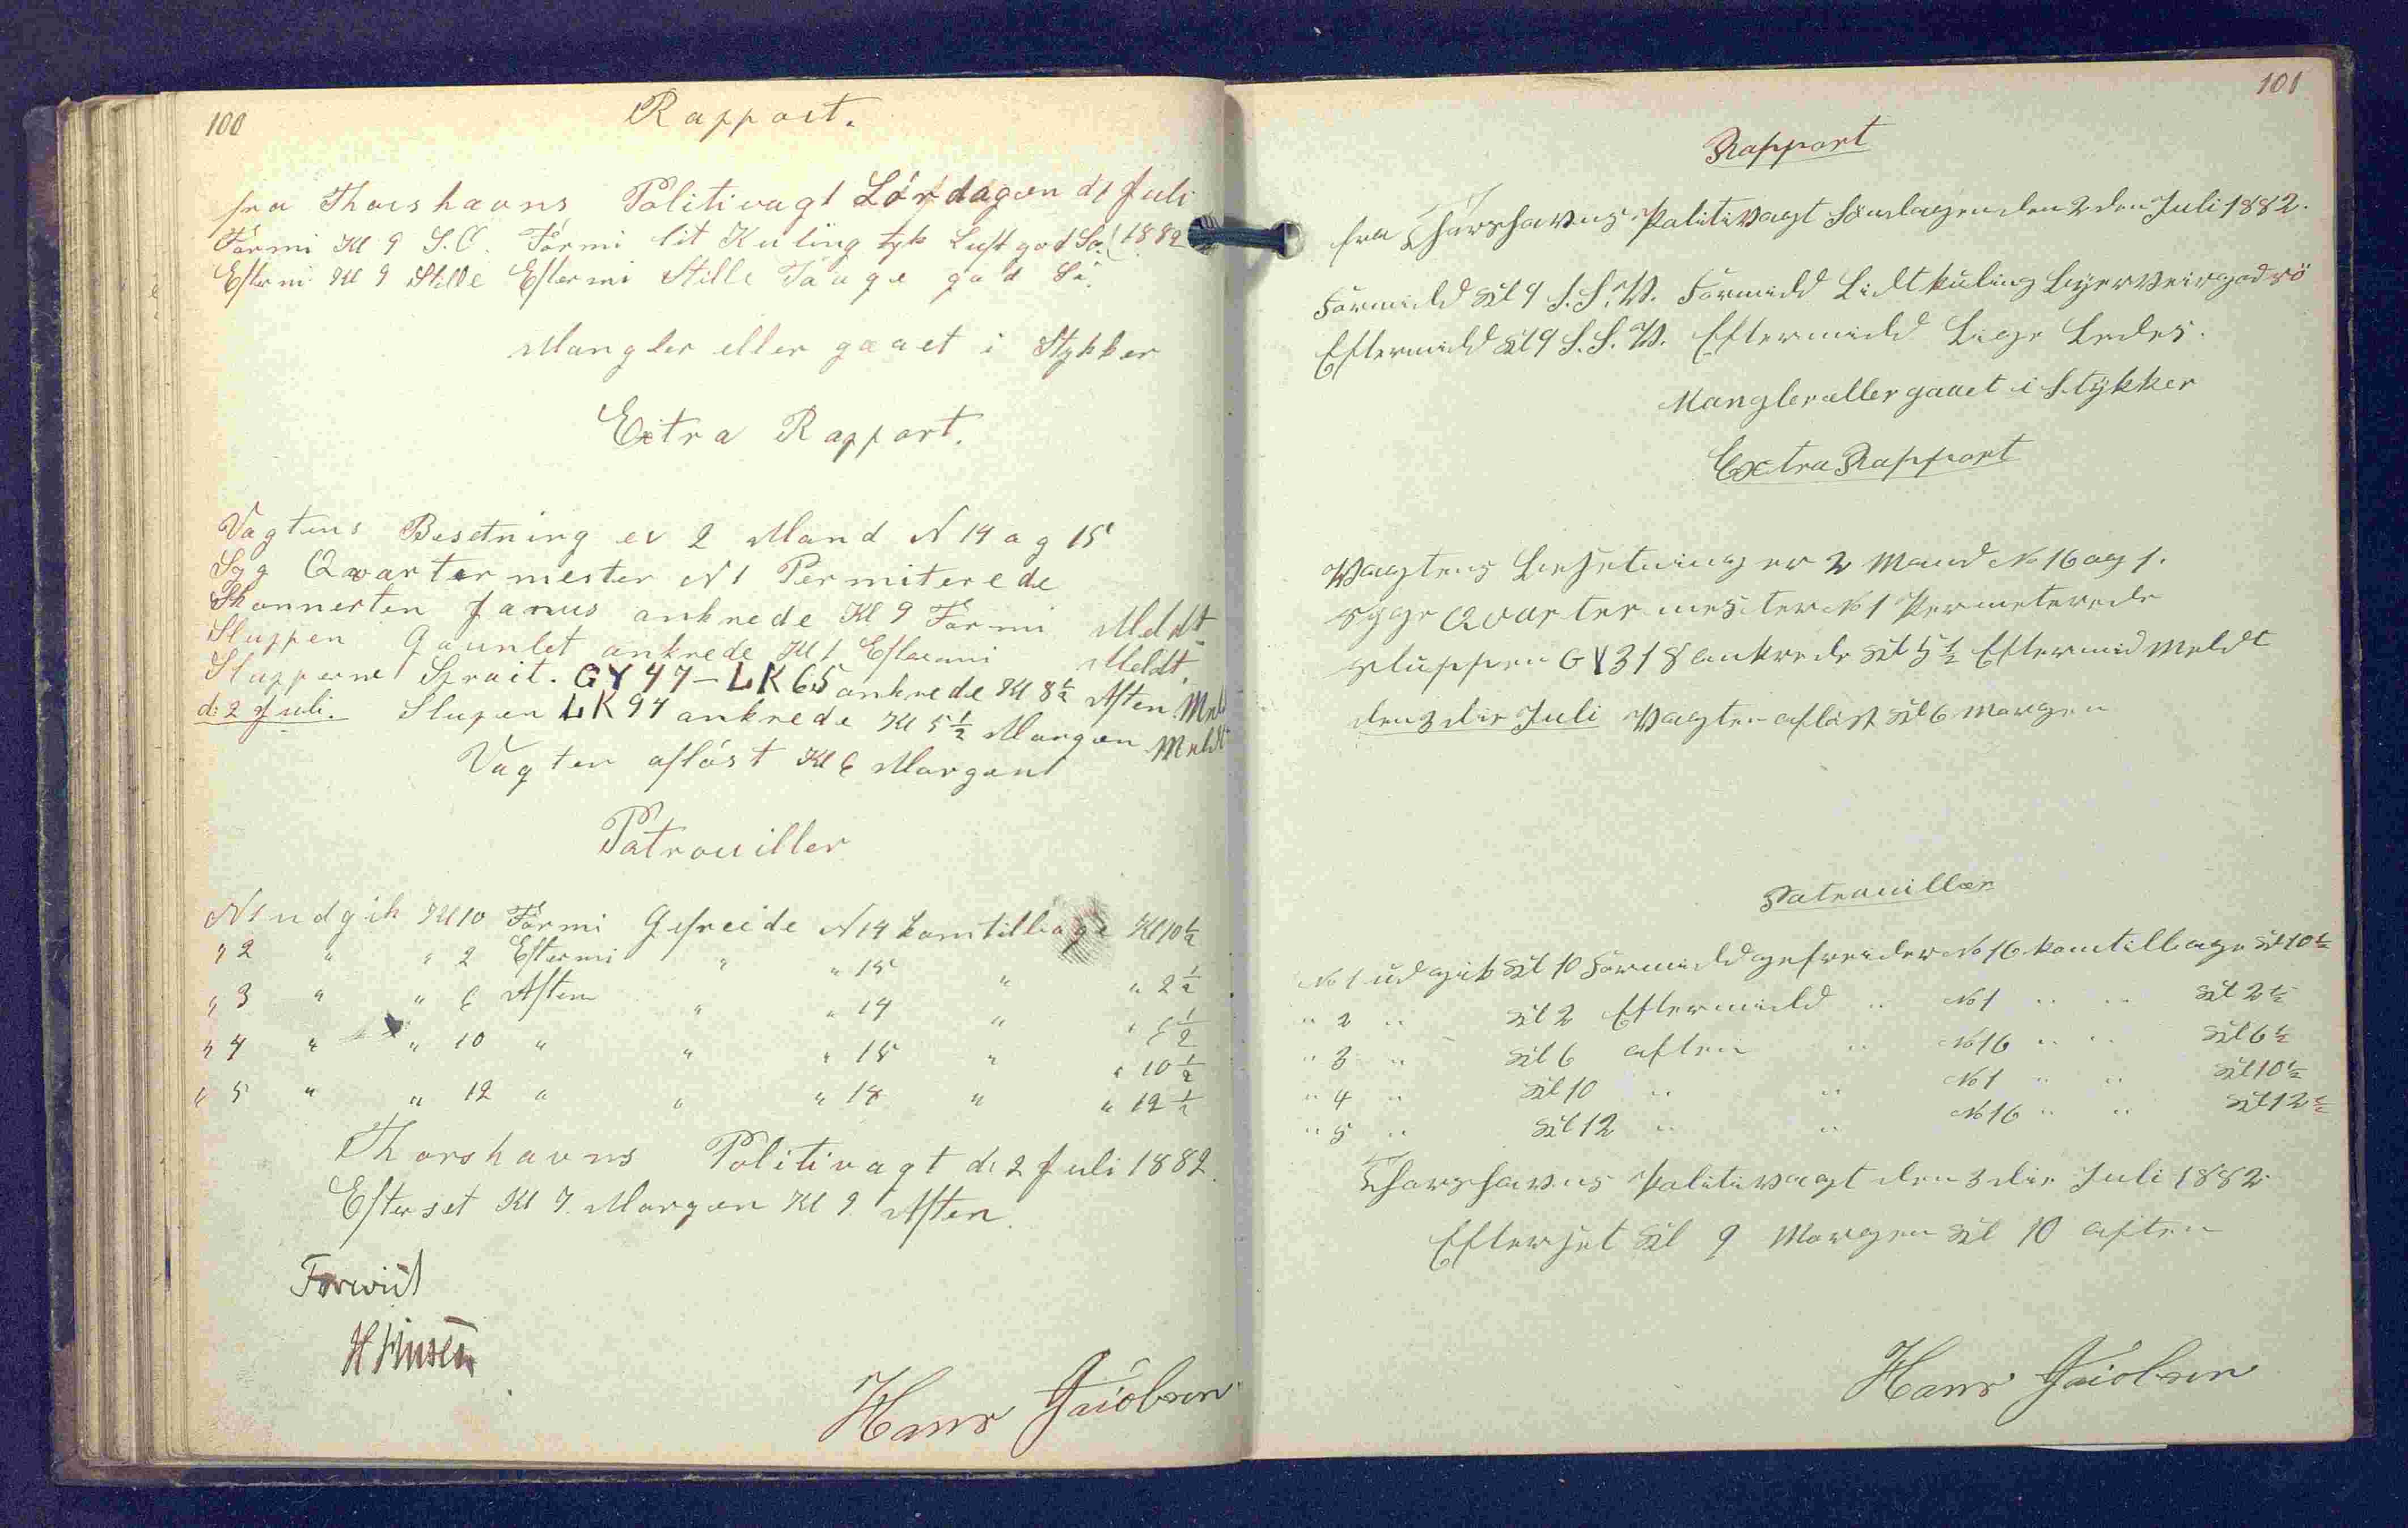 100
Rapport.
fra Thorshavns Politivagt Lørdagen d1 Juli
Formi Kl 9 S.O. Formi lit Kuling tyk Luft god Sø. 1882
Eftermi Kl 9 Stille Eftermi Stille Taage god Sø.
Mangler eller gaaet i Stykker
Extra Rapport.
Vagtens Besetning er 2 Mand N 14 og 15
Syg Qvartermester N1 Permiterede
Skonnerten Janus ankrede Kl 9 Formi Meldt
Sluppen Gauntlet ankrede Kl 1 Eftermi Meldt.
Slupperne Sprait. GY 47 – LK 65 ankrede Kl 8½ Aften Meld
d: 2 Juli. Slupen LK 94 ankrede Kl 5½ Morgen Meldt
Vagten afløst Kl 6 Morgen
Patrouiller
N1 udgik Kl 10 Formi Gefreide N14 kom tilbage Kl 10½
" 2 " " 2 Eftermi " " 15 " " 2½
" 3 " " 6 Aften " " 14 " " 6½
" 4 " " 10 " " " 15 " " 10½
" 5 " " 12 " " " 14 " " 12½
Thorshavns Politivagt d: 2 Juli 1882.
Efterset Kl 7. Morgen Kl 9 Aften.
Hans Jacobsen
101
Rapport
fra Thorshavns Politivagt Søndagen den 2den Juli 1882.
Formidd Kl 9 S.S.W. Formidd Lidt kuling Leyerveir god sö
Eftermidd Kl 9 S.S.W. Eftermidd Lige Ledes.
Mangler eller gaaet i Stykker
Extra Rapport
Vagtens Besetning er 2 Mand No 16 og 1.
Syge Qvartermester No 1 Permeterede
Sluppen GY 318 ankrede Kl 5½ Eftermid Meldt
den 3die Juli Vagten afløst Kl 6 Morgen
Patrouiller
No 1 udgik Kl 10 Formidd gefreider No 16 kom tilbage Kl 10½
" 2 " Kl 2 Eftermidd " No 1 " " Kl 2½
" 3 " Kl 6 aften " No 16 " " Kl 6½
" 4 " Kl 10 " " No 1 " " Kl 10½
" 5 " Kl 12 " " No 16 " " Kl 12½
Thorshavns Politivagt den 3die Juli 1882.
Efterset Kl 9 Morgen Kl 10 aften
Hans Jacobsen